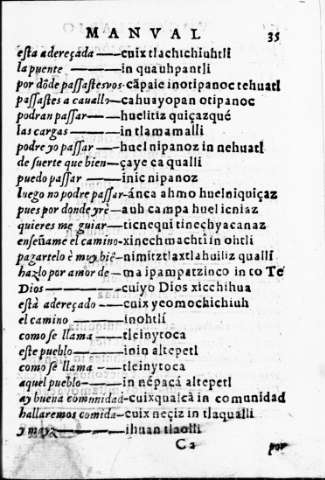 MANVAL 35
esta adereçada — cuix tlachichiuhtli
la puente — in quauhpantli
por dõde passastesvos — cãpaie inotipanoc tehuatl
passastes a cauallo — cahuayopan otipanoc
podran passar — huelitiz quiçazqué
las cargas — in tlamamalli
podre yo passar — huel nipanoz in nehuatl
de suerte que bien — çaye ca qualli
puedo passar — inic nipanoz
luego no podre passar — ánca ahmo huelniquiçaz
pues por donde yrè — auh campa huel icniaz
quieres me guiar — ticnequi tinechyacanaz
enseñame el camino — xinechmachti in ohtli
pagartelo è muy biē — nimitztlaxtlahuiliz qualli
hazlo por amor de — ma ipampatzinco in to Te
Dios — cuiyo Dios xicchihua
està adereçado — cuix yeomochichiuh
el camino — inohtli
como se llama — tleinytoca
este pueblo — inin altepetl
como se llama — tleinytoca
aquel pueblo — in nēpacá altepetl
ay buena comunidad — cuixqualcã in comunidad
hallaremos comida — cuix neçiz in tlaqualli
y mayz — ihuan tlaolli
C2 por